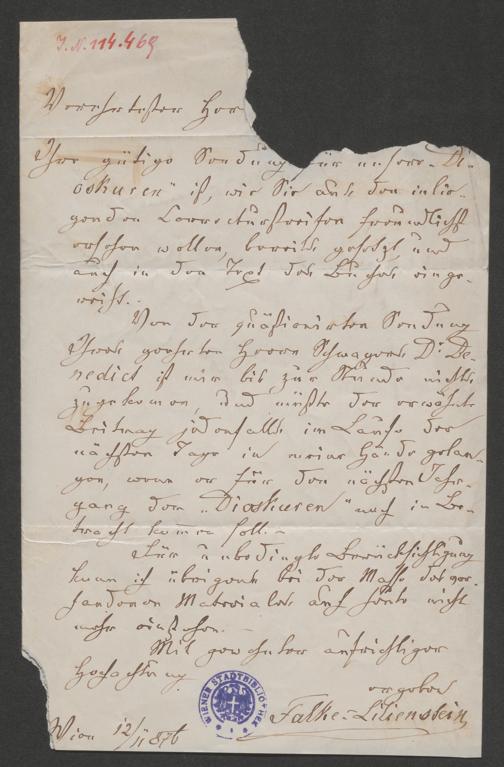 J.N. 114.469
Verehrtester Herr
Ihre gütige Sendung für unsere „Di-
oskuren“ ist, wie Sie aus den inlie-
genden Correcturstreifen freundlichst
ersehen wollen, bereits gesetzt und
auch in den Text des Buches einge-
reiht.
Von der quästionirten Sendung
Ihres geehrten Herrn Schwagers Dr Be-
nedict ist mir bis zur Stunde nichts
zugekomen, und müßte der erwähnte
Beitrag jedenfalls im Laufe der
nächsten Tage in meine Hände gelan-
gen, wenn er für den nächsten Jahr-
gang der „Dioskuren“ noch in Be-
tracht komen soll.–
Für unbedingte Berücksichtigung
kann ich übrigens bei der Masse des vor-
handenen Materiales auch heute nicht
mehr einstehen.
Mit gewohnter aufrichtiger
Hochachtung
ergeben
Falke-Lilienstein
Wien 12/11 876
WIENER STADTBIBLIOTHEK